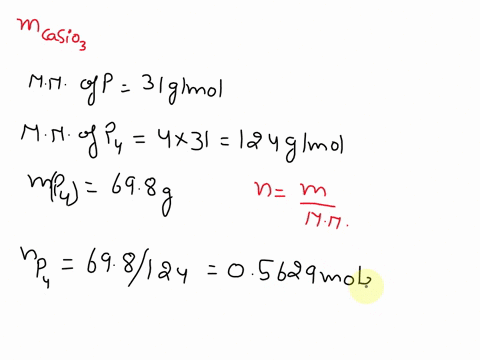 mCaSiO3
M.M. of P = 31 g/mol
M.M. of P4 = 4x31 = 124 g/mol
m(P4) = 69.8 g
n = m / M.M.
nP4 = 69.8/124 = 0.5629 mol